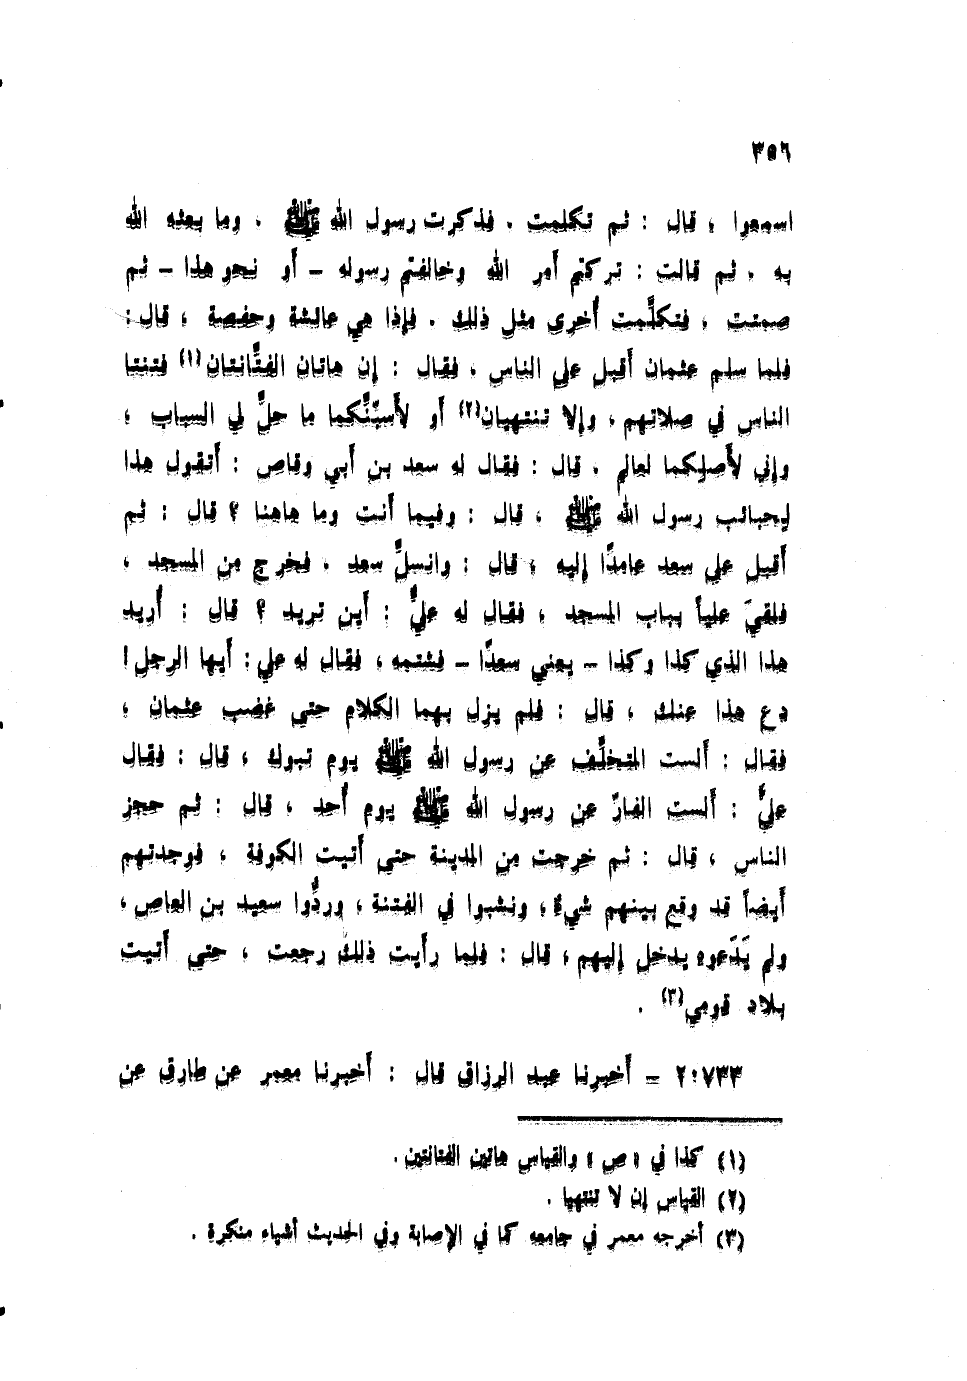 ٣٥٦
اسمعوا ، قال : ثم تكلمت . فذكرت رسول الله ﷺ . وما بعثه الله
به . ثم قالت : تركتم أمر الله وخالفتم رسوله – أو نحو هذا – ثم
صمتت ، فتكلَّمت أُخرى مثل ذلك . فإذا هي عائشة وحفصة ، قال :
فلما سلم عثمان أقبل على الناس ، فقال : إن هاتان الفتَّانتان(١) فتنتا
الناس في صلاتهم ، وإلا تنتهيان(٢) أو لأَسبّنَّكما ما حلَّ لي السباب ،
وإني لأَصلكما لعالم . قال : فقال له سعد بن أَبي وقاص : أَتقول هذا
لحبائب رسول الله ﷺ ، قال : وفيما أنت وما هاهنا ؟ قال : ثم
أَقبل على سعد عامدًا إليه ، قال : وانسلَّ سعد . فخرج من المسجد ،
فلقيَ علياً بباب المسجد ، فقال له عليٌّ : أَين تريد ؟ قال : أُريد
هذا الذي كذا وكذا – يعني سعدًا – فشتمه ، فقال له علي : أَيها الرجل !
دع هذا عنك ، قال : فلم يزل بهما الكلام حتى غضب عثمان ،
فقال : أَلست المتخلِّف عن رسول الله ﷺ يوم تبوك ، قال : فقال
عليٌّ : أَلست الفارّ عن رسول الله ﷺ يوم أُحد ، قال : ثم حجز
الناس ، قال : ثم خرجت من المدينة حتى أَتيت الكوفة ، فوجدتهم
أَيضاً قد وقع بينهم شيءٌ ، ونشبوا في الفتنة ، وردُّوا سعيد بن العاص ،
ولم يَدَعوه يدخل إليهم ، قال : فلما رأَيت ذلك رجعت ، حتى أَتيت
بلاد قومي(٣) .
٢٠٧٣٣ – أَخبرنا عبد الرزاق قال : أَخبرنا معمر عن طارق عن
(١) كذا في « ص » والقياس هاتين الفتانتين .
(٢) القياس إن لا تنتهيا .
(٣) أخرجه معمر في جامعه كما في الإصابة وفي الحديث أشياء منكرة .